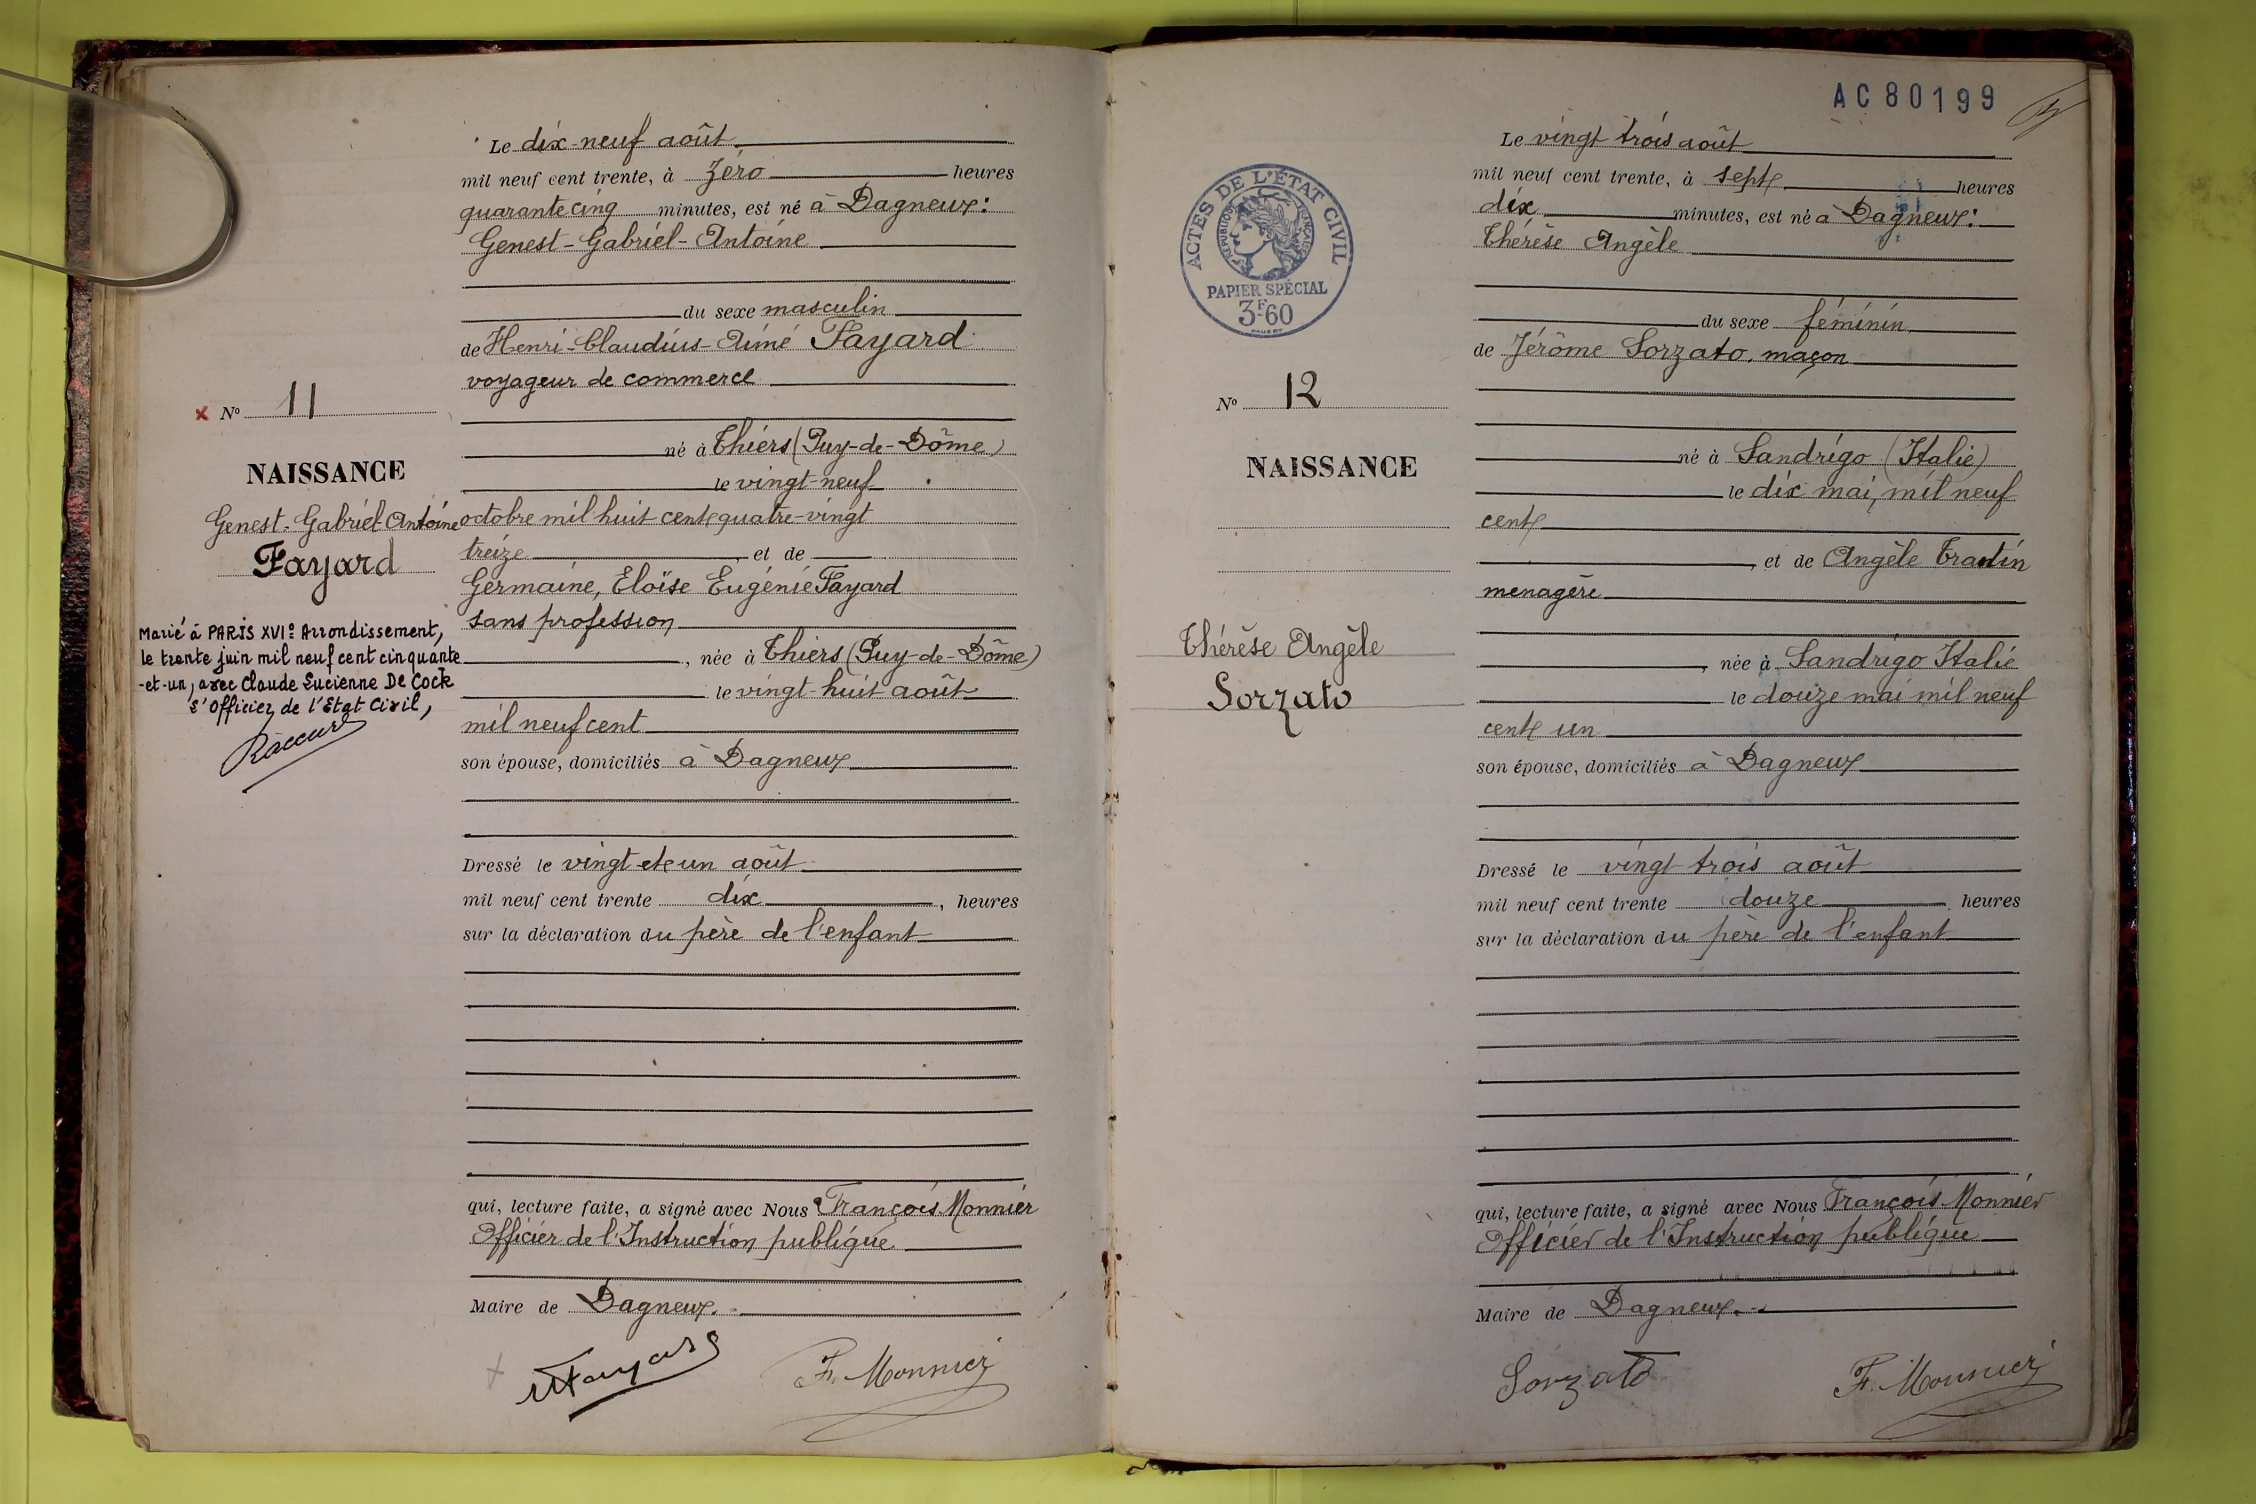 Le dix-neuf août
mil neuf cent trente, à Zéro heures
quarante cinq minutes, est né à Dagneux:
Genest-Gabriel-Antoine
du sexe masculin
de Henri-Claudius-Aimé Fayard
voyageur de commerce
né à Thiers (Puy-de-Dôme)
le vingt-neuf
octobre mil huit cent quatre-vingt
treize et de
Germaine, Eloïse Eugénie Fayard
sans profession
, née à Thiers (Puy-de-Dôme)
le vingt-huit août
mil neuf cent
son épouse, domiciliés à Dagneux
Dressé le vingt et un août
mil neuf cent trente dix, heures
sur la déclaration du père de l'enfant
qui, lecture faite, a signé avec Nous François Monnier
Officier de l'Instruction publique
Maire de Dagneux.
F. Monnier
× No 11
NAISSANCE
Genest-Gabriel-Antoine
Fayard
Marié à PARIS XVIe Arrondissement,
le trente juin mil neuf cent cinquante
-et-un, avec Claude Lucienne De Cock
L'Officier de l'Etat Civil,
AC 80199
ACTES DE L'ÉTAT CIVIL
RÉPUBLIQUE FRANÇAISE
PAPIER SPÉCIAL
3F60
No 12
NAISSANCE
Thérèse Angèle
Sorzato
Le vingt trois août
mil neuf cent trente, à sept heures
dix minutes, est né à Dagneux:
Thérèse Angèle
du sexe féminin
de Jérôme Sorzato, maçon
né à Sandrigo (Italie)
le dix mai, mil neuf
cent
, et de Angèle
menagère
, née à Sandrigo Italie
le douze mai mil neuf
cent un
son épouse, domiciliés à Dagneux
Dressé le vingt trois août
mil neuf cent trente douze heures
sur la déclaration du père de l'enfant
qui, lecture faite, a signé avec Nous François Monnier
Officier de l'Instruction publique
Maire de Dagneux.
Sorzato
F. Monnier